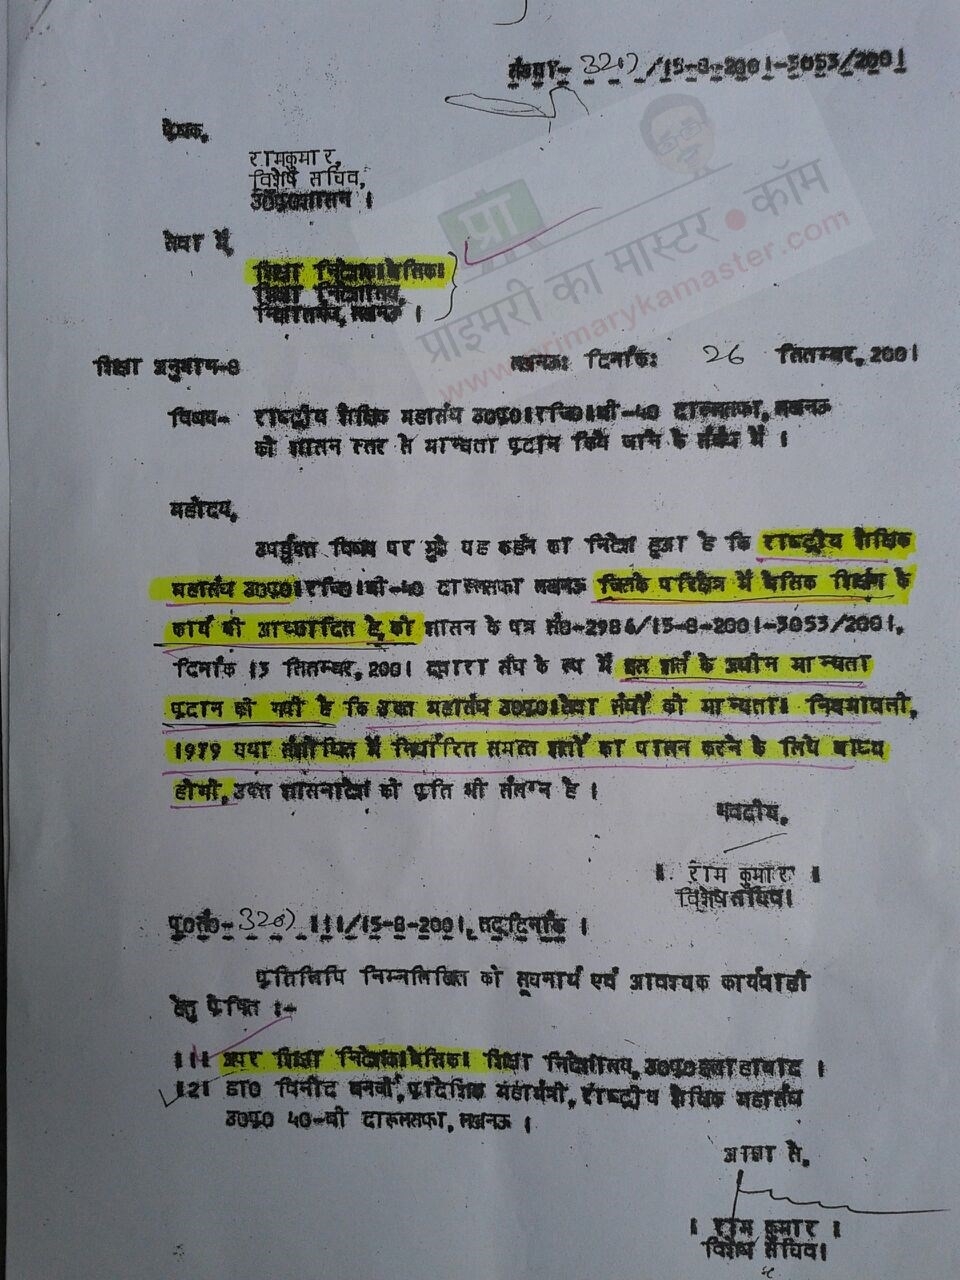 संख्या- 320)/15-8-2001-3053/2001
प्रेषक,
रामकुमार,
विशेष सचिव,
उ०प्र०शासन ।
सेवा में,
शिक्षा निदेशक।बेसिक।
शिक्षा निदेशालय,
लखनऊ ।
शिक्षा अनुभाग-8
लखनऊः दिनांकः 26 सितम्बर, 2001
विषय- राष्ट्रीय शैक्षिक महासंघ उ०प्र०।रजि०।बी-40 दारूलसफा, लखनऊ
को शासन स्तर से मान्यता प्रदान किये जाने के संबंध में ।
महोदय,
उपर्युक्त विषय पर मुझे यह कहने का निदेश हुआ है कि राष्ट्रीय शैक्षिक
महासंघ उ०प्र०।रजि०।बी-40 दारूलसफा लखनऊ जिसके परिक्षेत्र में बेसिक शिक्षा के
कार्य भी आच्छादित है, को शासन के पत्र सं०-2986/15-8-2001-3053/2001,
दिनांक 13 सितम्बर, 2001 द्वारा संघ के रूप में इस शर्त के अधीन मान्यता
प्रदान की गयी है कि उक्त महासंघ उ०प्र०।सेवा संघों की मान्यता। नियमावली,
1979 यथा संशोधित में निर्धारित समस्त शर्तों का पालन करने के लिये बाध्य
होगी, उक्त शासनादेश की प्रति भी संलग्न है ।
भवदीय,
। राम कुमार ।
विशेष सचिव।
पृ०सं०-320) ।।।/15-8-2001, तद्दिनांक ।
प्रतिलिपि निम्नलिखित को सूचनार्थ एवं आवश्यक कार्यवाही
हेतु प्रेषित :-
।1। अपर शिक्षा निदेशक।बेसिक। शिक्षा निदेशालय, उ०प्र०इलाहाबाद ।
।2। डा० विनोद बनर्जी, प्रादेशिक महामंत्री, राष्ट्रीय शैक्षिक महासंघ
उ०प्र० 40-बी दारूलसफा, लखनऊ ।
आज्ञा से,
। राम कुमार ।
विशेष सचिव।
प्रा
प्राइमरी का मास्टर ● कॉम
www.primarykamaster.com